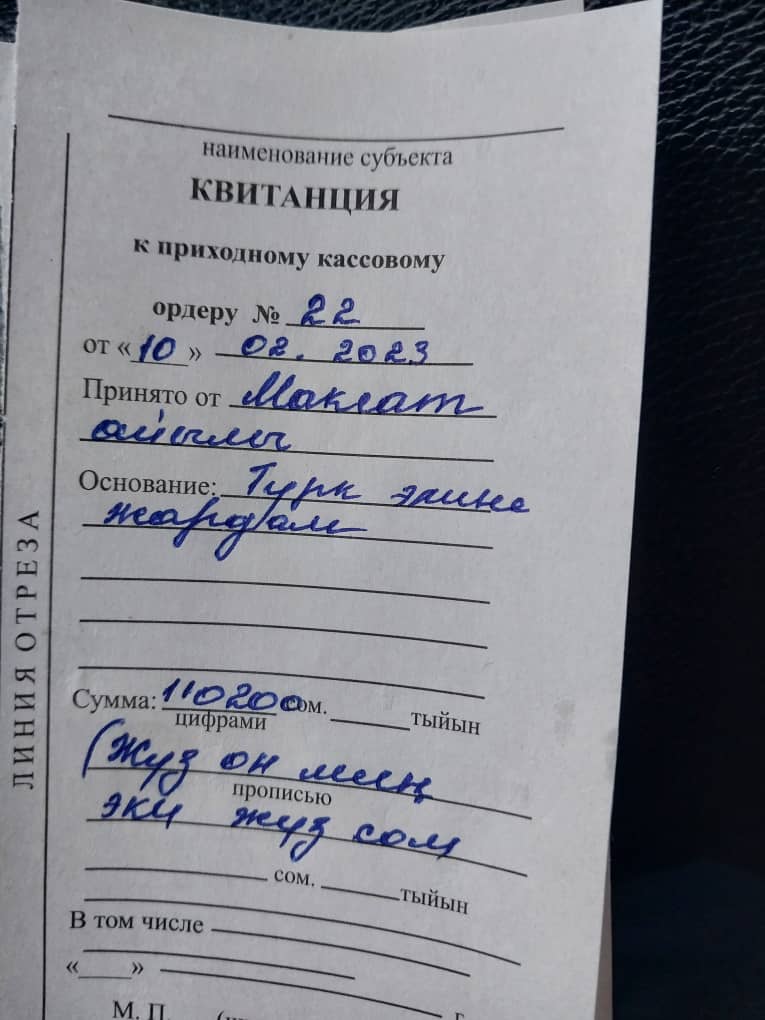 наименование субъекта
КВИТАНЦИЯ
к приходному кассовому
ордеру № 22
от «10» 02. 2023
Принято от Маклат
айылы
Основание: Турк элине
жардам
Сумма: 110200 сом. тыйын
цифрами
(Жуз он миң
прописью
эки жуз сом
сом. тыйын
В том числе
« » г
М. П.
ЛИНИЯ ОТРЕЗА